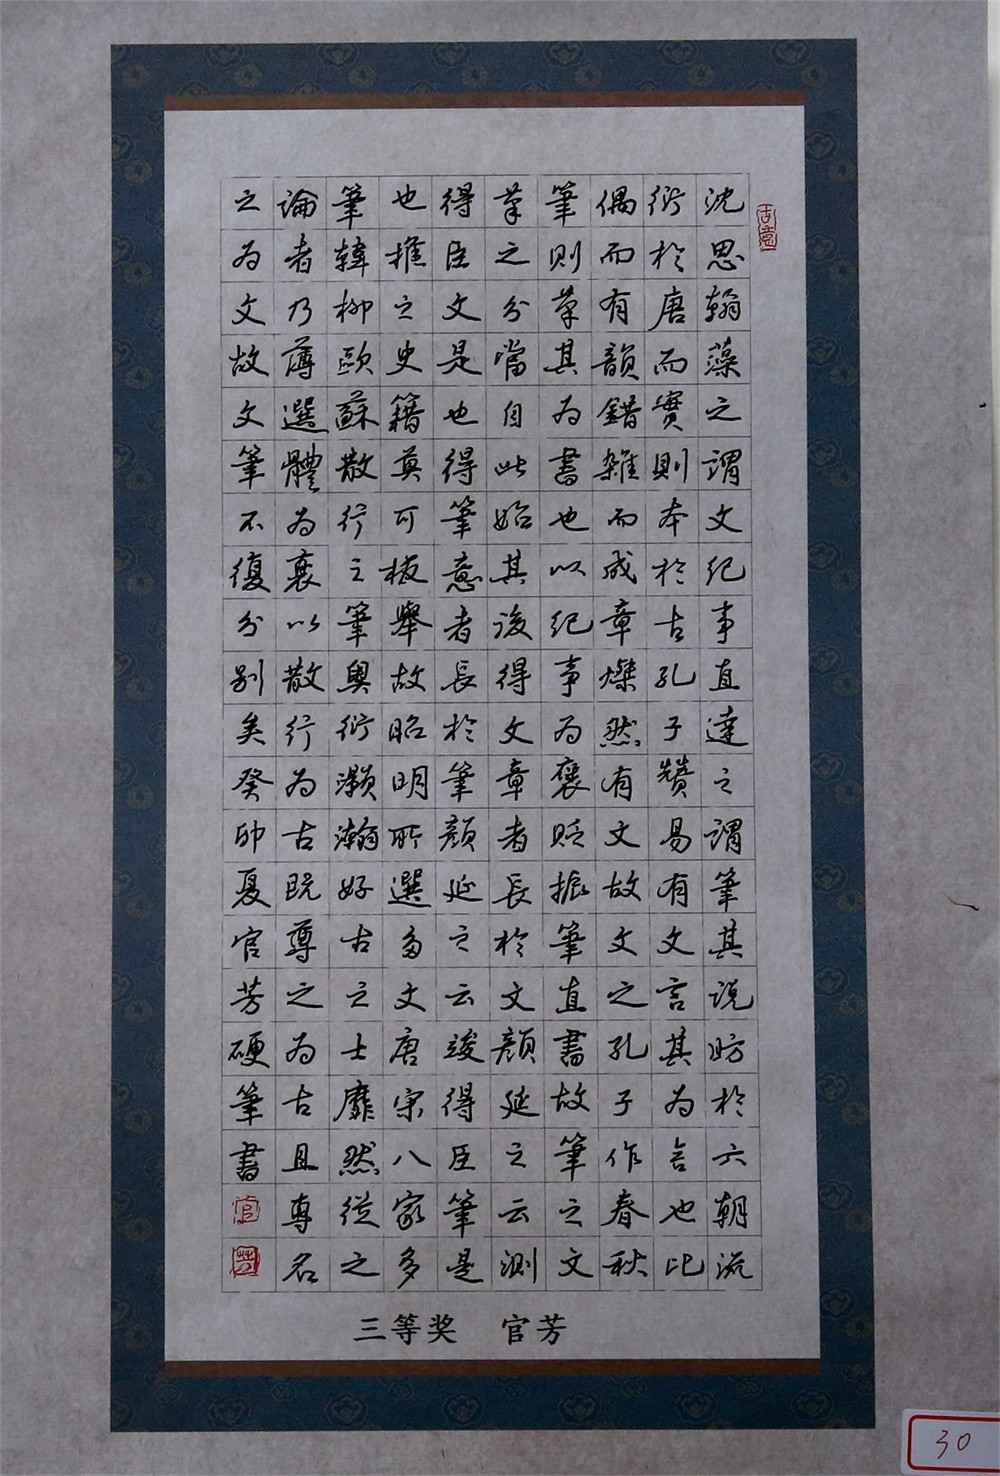 沈思翰藻之謂文紀事直達之謂筆其說昉於六朝流
衍於唐而實則本於古孔子贊易有文言其為言也比
偶而有韻錯雜而成章燦然有文故文之孔子作春秋
筆則筆其為書也以紀事為褒貶振筆直書故筆之文
筆之分當自此始其後得文章者長於文顏延之云測
得臣文是也得筆意者長於筆顏延之云竣得臣筆是
也推之史籍莫可枚舉故昭明所選多文唐宋八家多
筆韓柳歐蘇散行之筆奧衍灝瀚好古之士靡然從之
論者乃薄選體為衰以散行為古既尊之為古且專名
之為文故文筆不復分別矣癸卯夏官芳硬筆書
古意
官
芳
三等奖 官芳
30